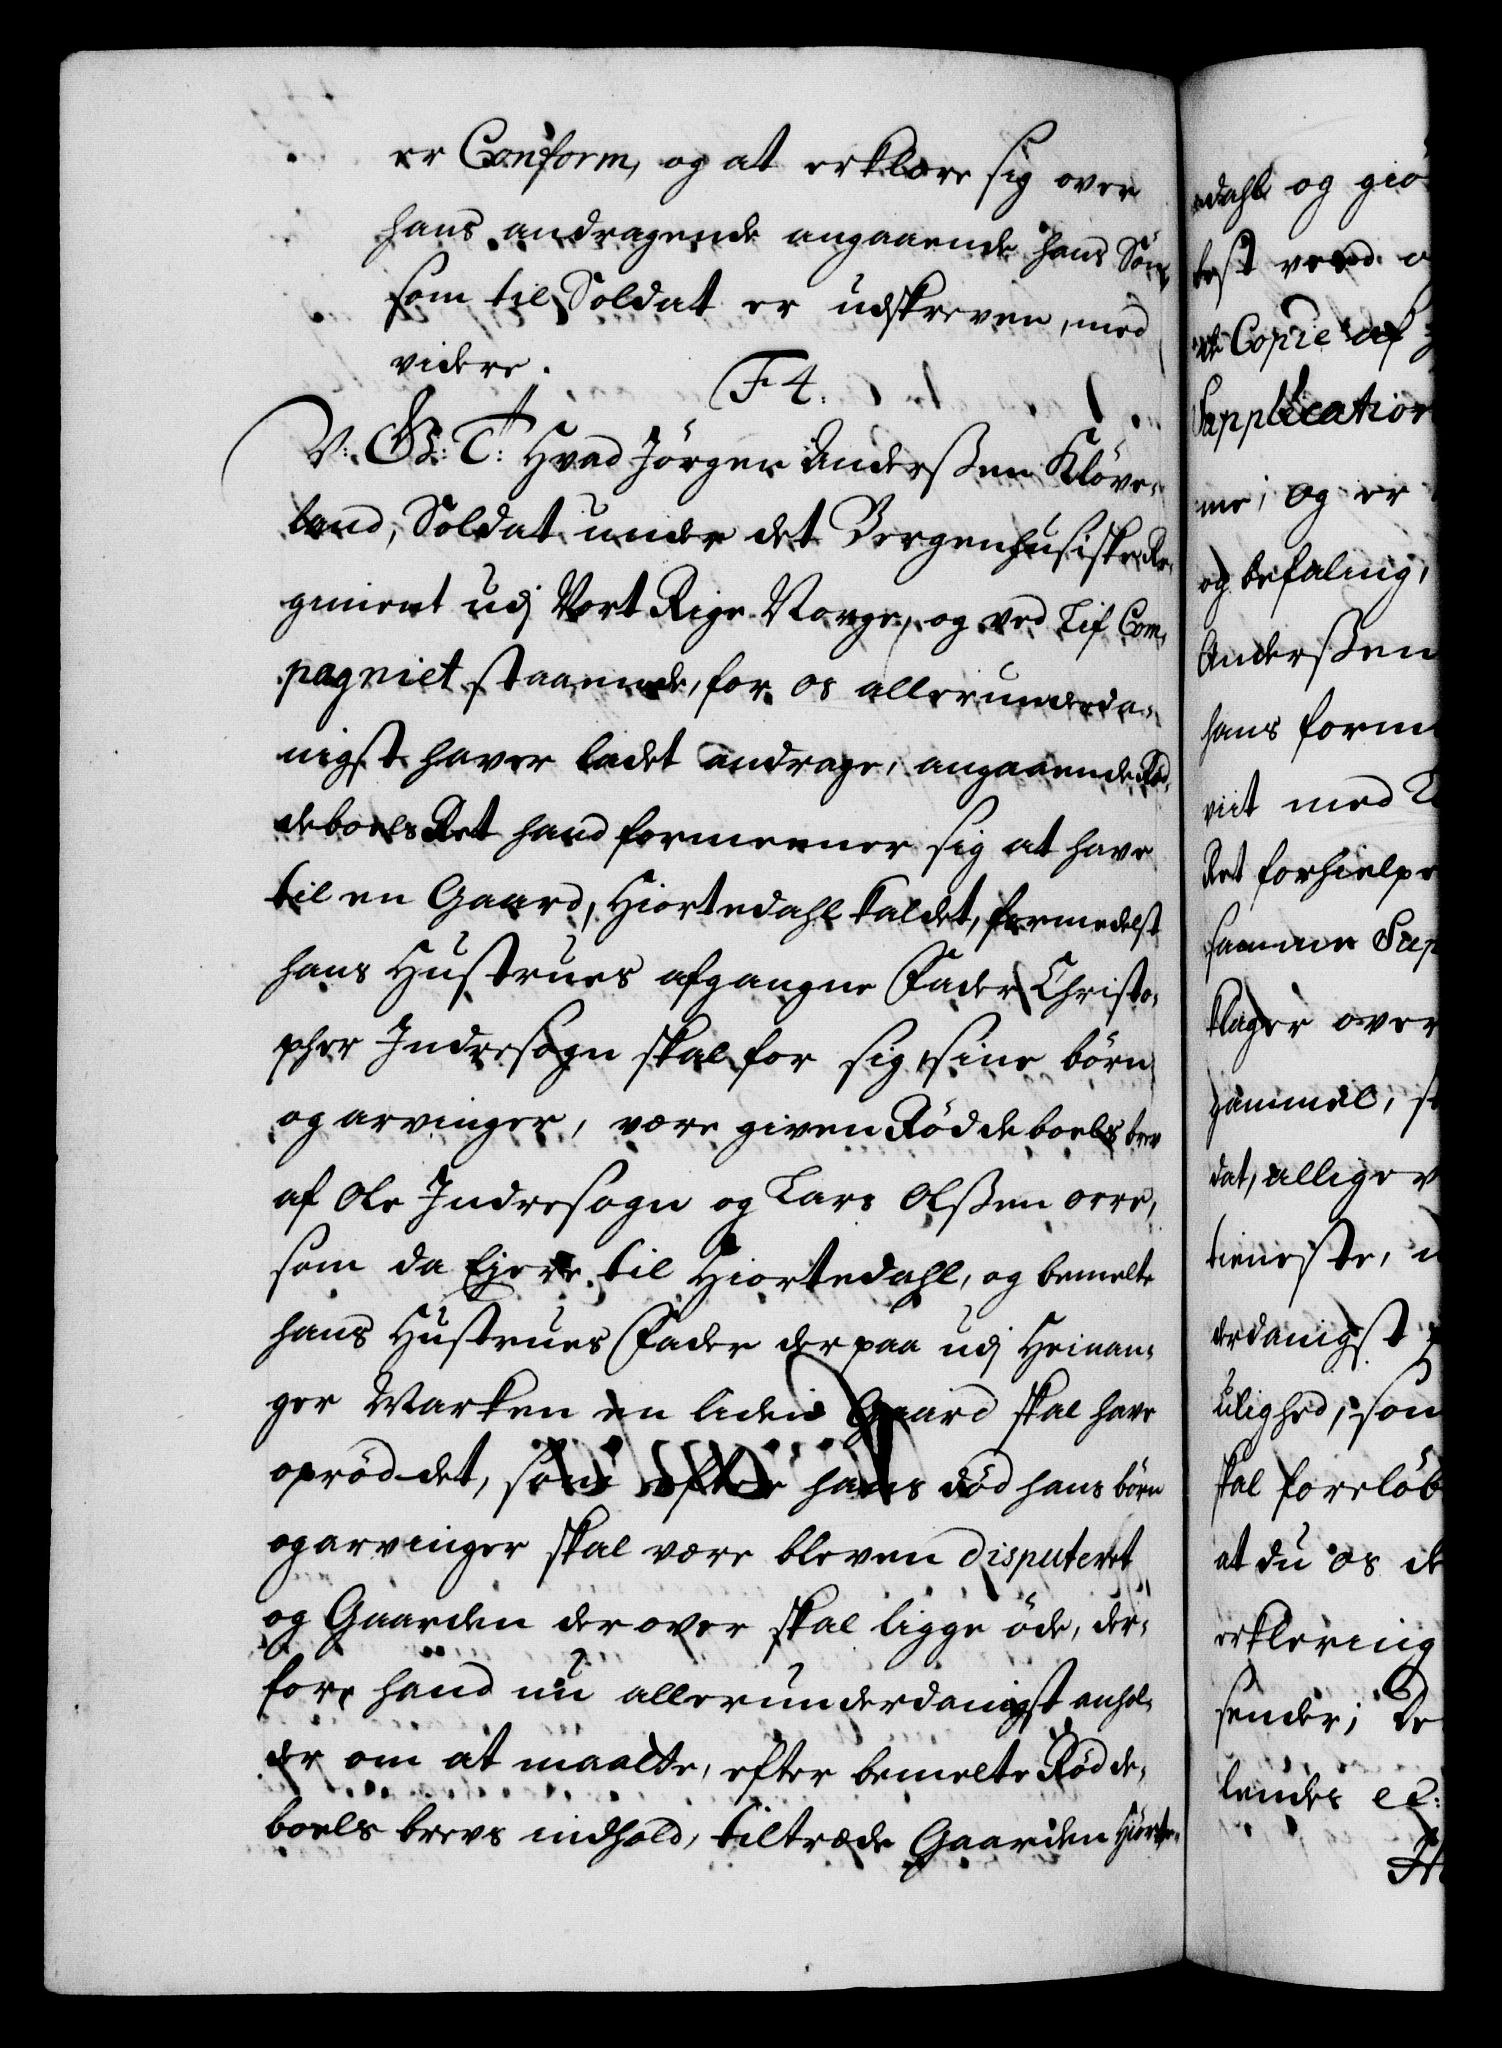 er Conform, og at erklære sig over
hans andragende angaaende hans Søn
som til Soldat er udskreven, med
videre.
F4.
V: G: T: Hvad Jörgen Anderßen Klöve-
land, Soldat under det Bergenhusiske Re-
giment udj Vort Rige Norge, og ved Lif Com-
pagniet staaende, for os allerunderda-
nigst haver ladet andrage, angaaende Röd-
deboels Ret hand formeener sig at have
til en Gaard, Hiortedahl kaldet, formedelst
hans Hustrues afgangne Fader Christo-
pher Indresogn skal for sig, sine börn
og arvinger, være given Röddeboels brev
af Ole Indresogn og Lars Olßen orre,
som da Ejere til Hiortedahl, og bemelte
hans Hustrues Fader der paa udj Heinan-
ger Marken en liden Gaard skal have
opröddet, som efter hans död hans börn
og arvinger skal være bleven disputeret
og Gaarden derover skal ligge öde, der-
fore hand nu allerunderdanigst anhol-
der om at maatte, efter bemelte Rödde-
boels brevs indhold, tiltræde Gaarden Hiorte-
dahl og giö
best veed
Copie af
Supplication
me; og er
og befaling,
Anderßen
hans form
viit med
Ret forhielpe
samme Sup
klager over
gammel, s
dat, allige v
tieneste,
derdanigst
ulighed, som
skal foreløb
at du os de
erklering
sender; De
lendes ec: